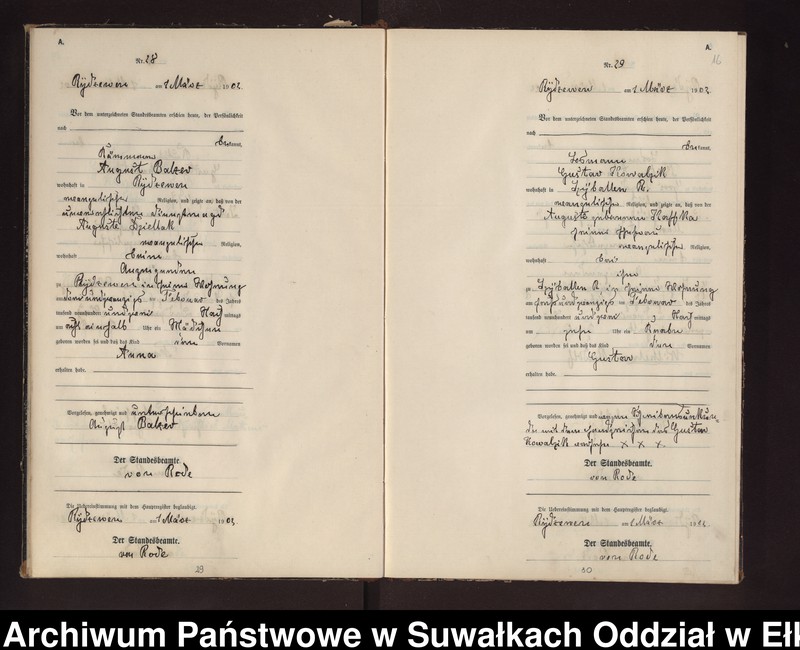 A.
Nr. 28
Rydzewen am 1 März 1902
Vor dem unterzeichneten Standesbeamten erschien heute, der Persönlichkeit
nach
bekannt,
August Balzer
wohnhaft in Rydzewen
evangelischer Religion, und zeigte an, daß von der
unverehelichten Dienstmagd
Auguste
evangelischer Religion,
wohnhaft bei
zu Rydzewen in seiner Wohnung
am Februar des Jahres
tausend neunhundert und zwei Nachmittags
um acht einhalb Uhr ein Mädchen
geboren worden sei und daß das Kind den Vornamen
Anna
erhalten habe.
Vorgelesen, genehmigt und unterschrieben
August Balzer
Der Standesbeamte.
von Rode
Die Uebereinstimmung mit dem Hauptregister beglaubigt.
Rydzewen am 1 März 1902
Der Standesbeamte.
von Rode
29
A.
16
Nr. 29
Rydzewen am 1 März 1902
Vor dem unterzeichneten Standesbeamten erschien heute, der Persönlichkeit
nach
bekannt,
Losmann
Gustav Kowalzik
wohnhaft in R.
evangelischer Religion, und zeigte an, daß von der
Auguste geborenen Koffka
seiner Ehefrau
evangelischer Religion,
wohnhaft bei
ihm
zu R in seiner Wohnung
am Februar des Jahres
tausend neunhundert und zwei, Nachmittags
um zehn Uhr ein Knabe
geboren worden sei und daß das Kind den Vornamen
Gustav
erhalten habe.
Vorgelesen, genehmigt und wegen Schreibensunkun-
de mit dem Handzeichen des Gustav
Kowalzik versehen x x x.
Der Standesbeamte.
von Rode
Die Uebereinstimmung mit dem Hauptregister beglaubigt.
Rydzewen am 1 März 1902
Der Standesbeamte.
von Rode
30
Archiwum Państwowe w Suwałkach Oddział w Ełk